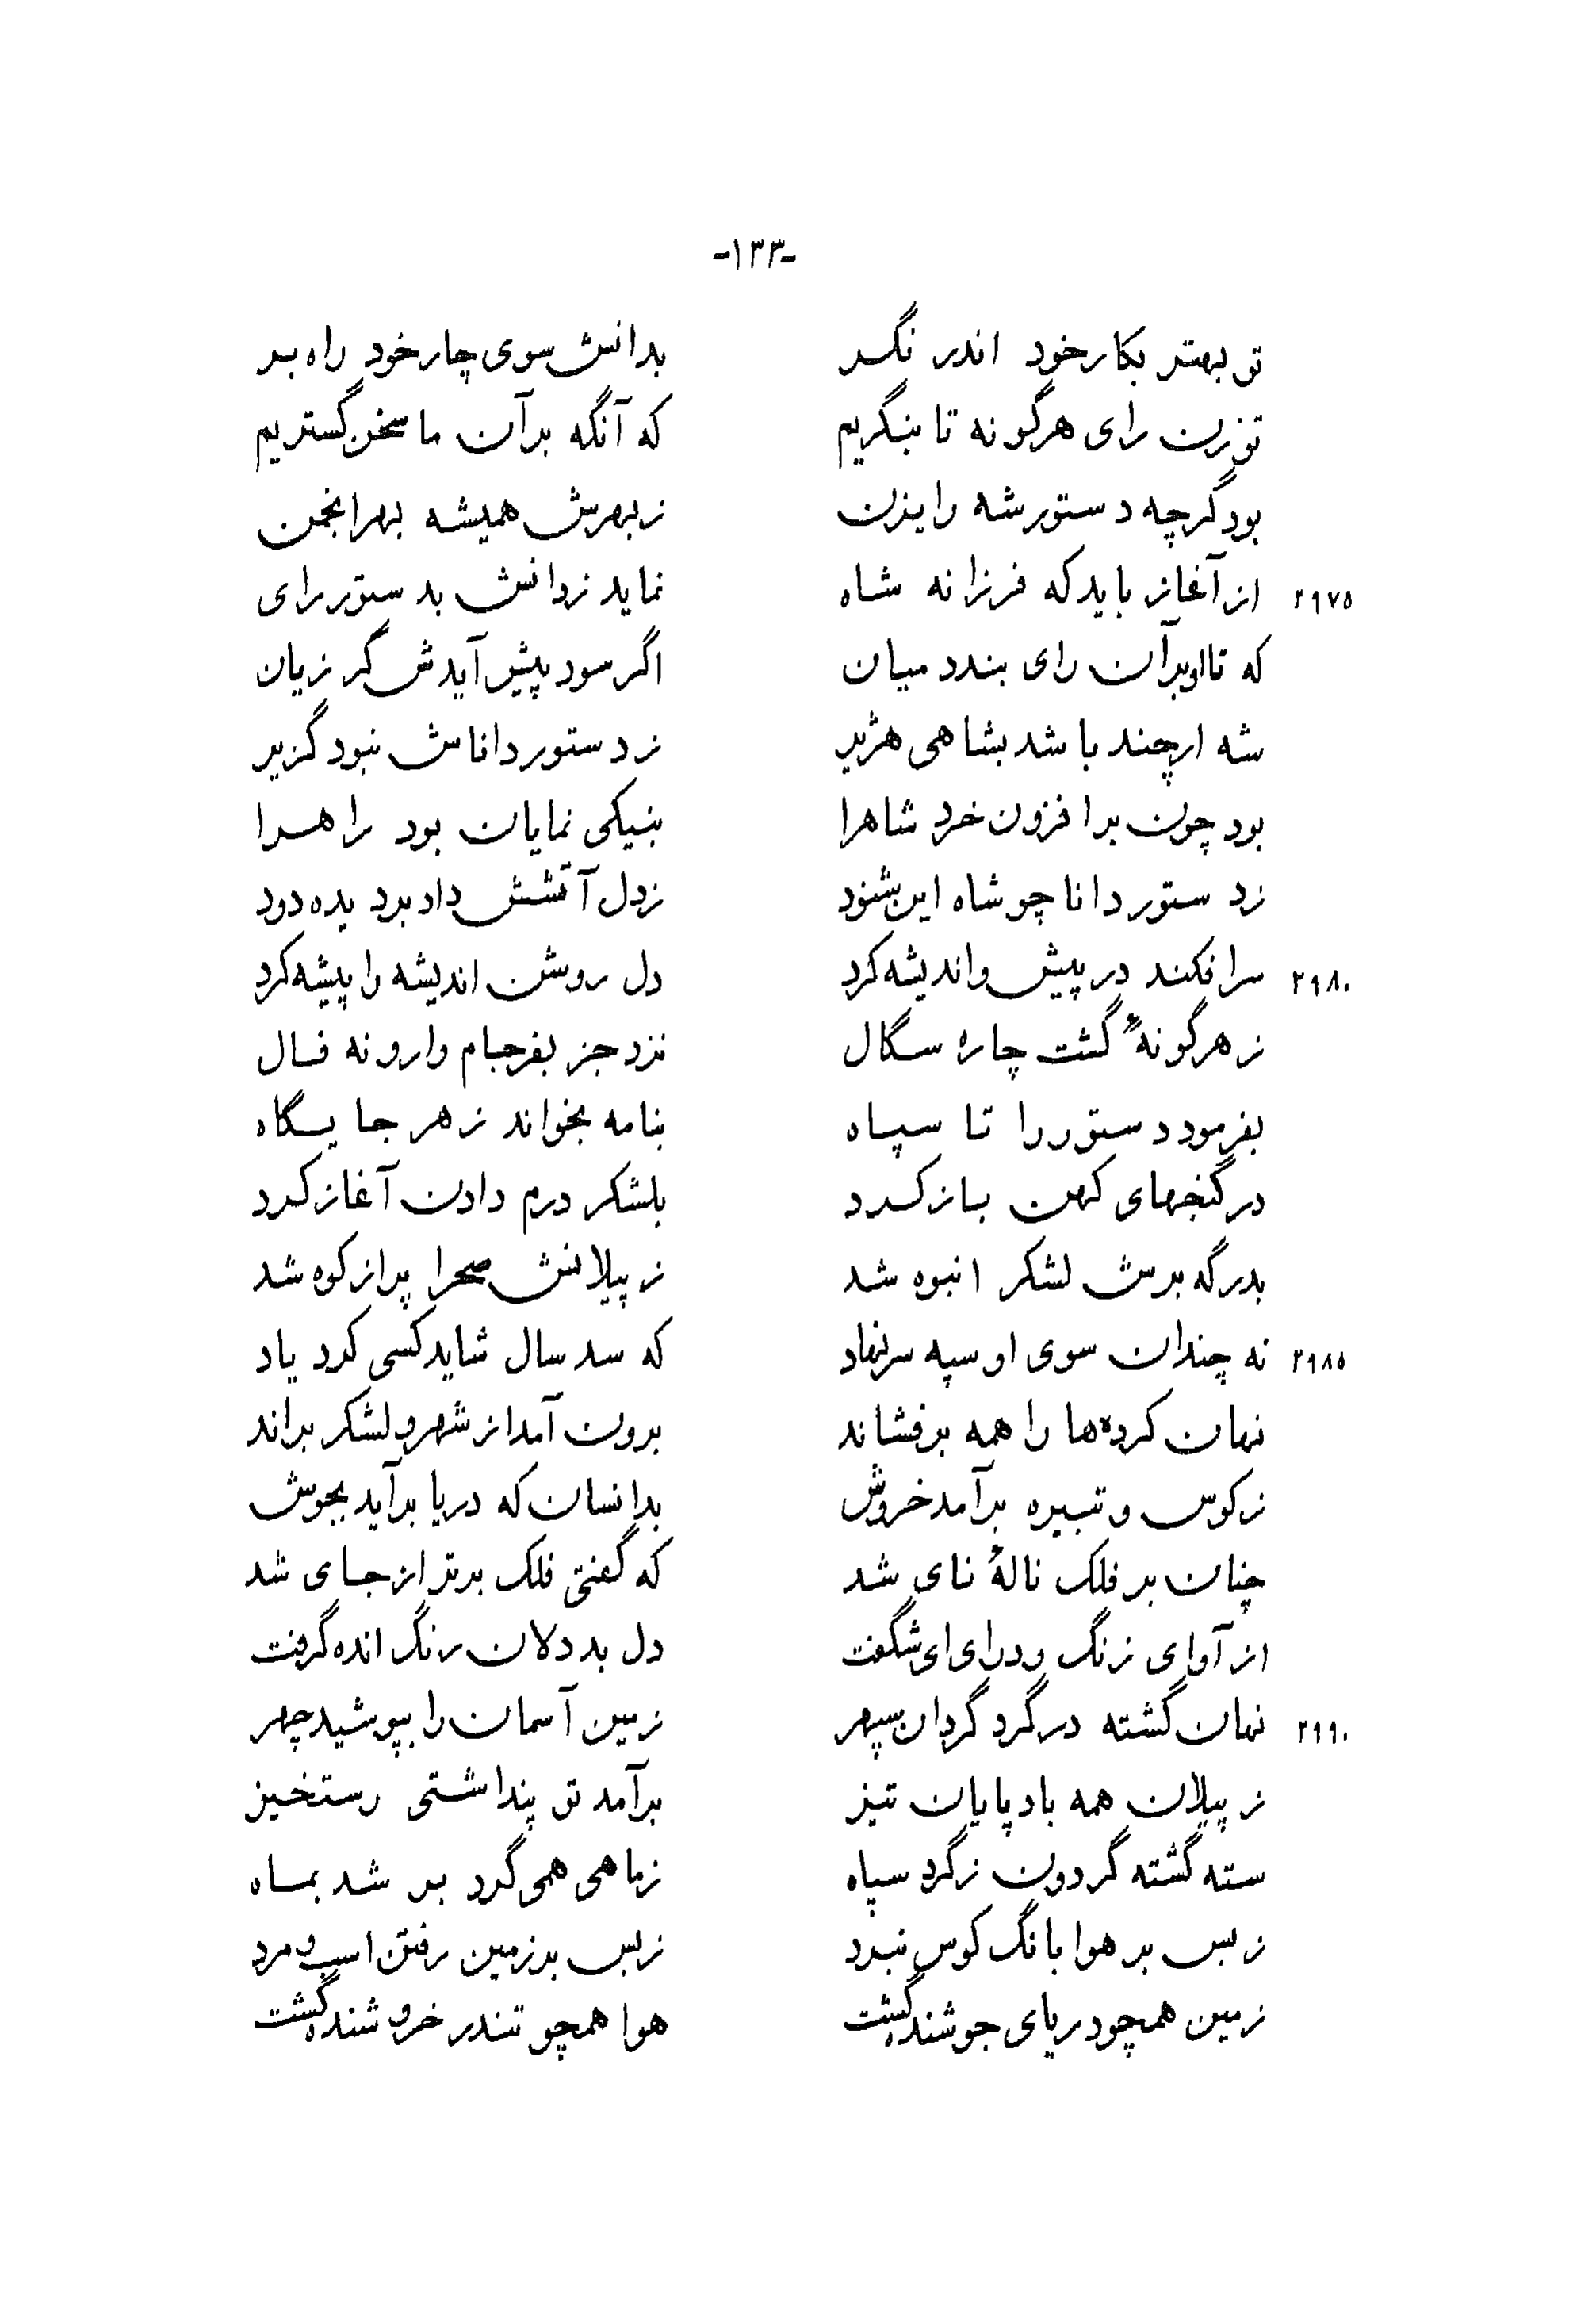 -۱۳۳-
تو بهتر بکار خود اندر نگر بدانش سوی چار خود راه بر
تو زن رای هرگونه تا بنگریم که آنگه بر آن ما سخن گستریم
بود گرچه دستور شه رایزن ز بهرش همیشه بهر انجمن
۲۹۷۵ از آغاز باید که فرزانه شاه نماید ز دانش بدستور رای
که تا او بر آن رای بندد میان اگر سود پیش آیدش گر زیان
شه ارچند باشد بشاهی هژیر ز دستور داناش نبود گزیر
بود چون برافزون خرد شاهرا بنیکی نمایان بود راهرا
ز دستور دانا چو شاه این شنود ز دل آتشش داد بر دیده دود
۲۹۸۰ سرافکند در پیش و اندیشه کرد دل روشن اندیشه را پیشه کرد
ز هر گونهٔ گشت چاره سگال نزد جز بفرجام وارونه فال
بفرمود دستور را تا سپاه بنامه بخواند ز هر جایگاه
در گنجهای کهن باز کرد بلشکر درم دادن آغاز کرد
بدرگه برش لشکر انبوه شد ز پیلانش صحرا پر از کوه شد
۲۹۸۵ نه چندان سوی او سپه سر نهاد که سد سال شاید کسی کرد یاد
نهان کرده‌ها را همه برفشاند برون آمد از شهر و لشکر براند
ز کوس و تبیره برآمد خروش بدانسان که دریا برآید بجوش
چنان بر فلک نالهٔ نای شد که گفتی فلک برتر از جای شد
از آوای زنگ و درای ای شگفت دل بددلان رنگ انده گرفت
۲۹۹۰ نهان گشته در گرد گردان سپهر زمین آسمان را بپوشید چهر
ز پیلان همه بادپایان تیز برآمد تو پنداشتی رستخیز
سته گشته گردون ز گرد سپاه ز ماهی همی گرد بر شد بماه
ز بس بر هوا بانگ کوس نبرد ز بس بر زمین رفتن اسب و مرد
زمین همچو دریای جوشنده گشت هوا همچو تندر خروشنده گشت